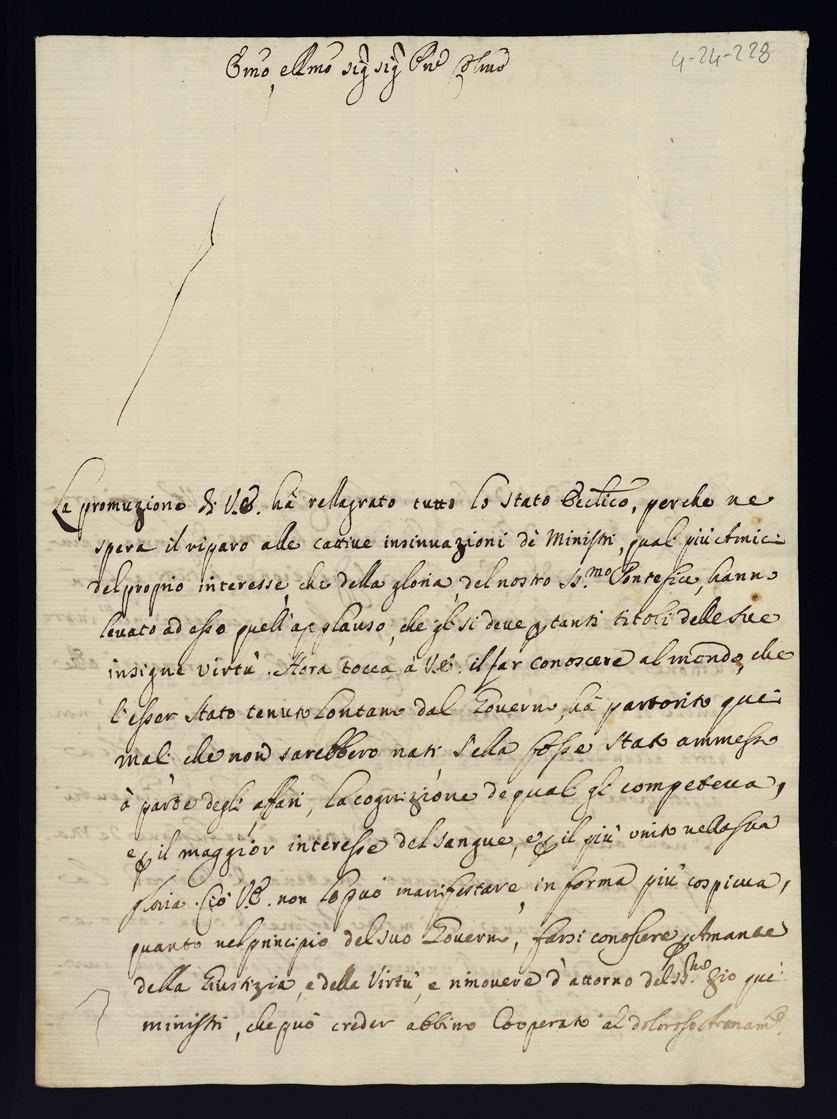 4-24-228
Emo, e Rmo Sig.r Sig.r Pne Colmo
La promuzione di V.E. hà rellagrato tutto lo Stato Eccl.ico, perche ne
spera il riparo alle cattive insinuazioni dè Ministri, quali più Amici
del proprio interesse, che della gloria, del nostro SS.mo Pontefice, hanno
levato ad esso quell'applauso, che gli si deve p tanti titoli delle sue
insigne virtù. Hora tocca à V.E. il far conoscere al mondo, che
l'esser stato tenuto Lontano dal Governo, hà partorito quei
mali che non sarebbero nati s'ella fosse stato ammesso
à parte degli affari, la cognizione de quali gli competeva,
e p il maggior interesse del sangue, e p il più unito nella sua
gloria. Ciò V.E. non lo può manifestare, in forma più cospicua,
quanto nel principio del suo Governo, farsi conoscere p Amante
della Giustizia, e della Virtù, e rimovere d'attorno del SS.mo Zio quei
ministri, che può creder abbino Cooperato al doloroso